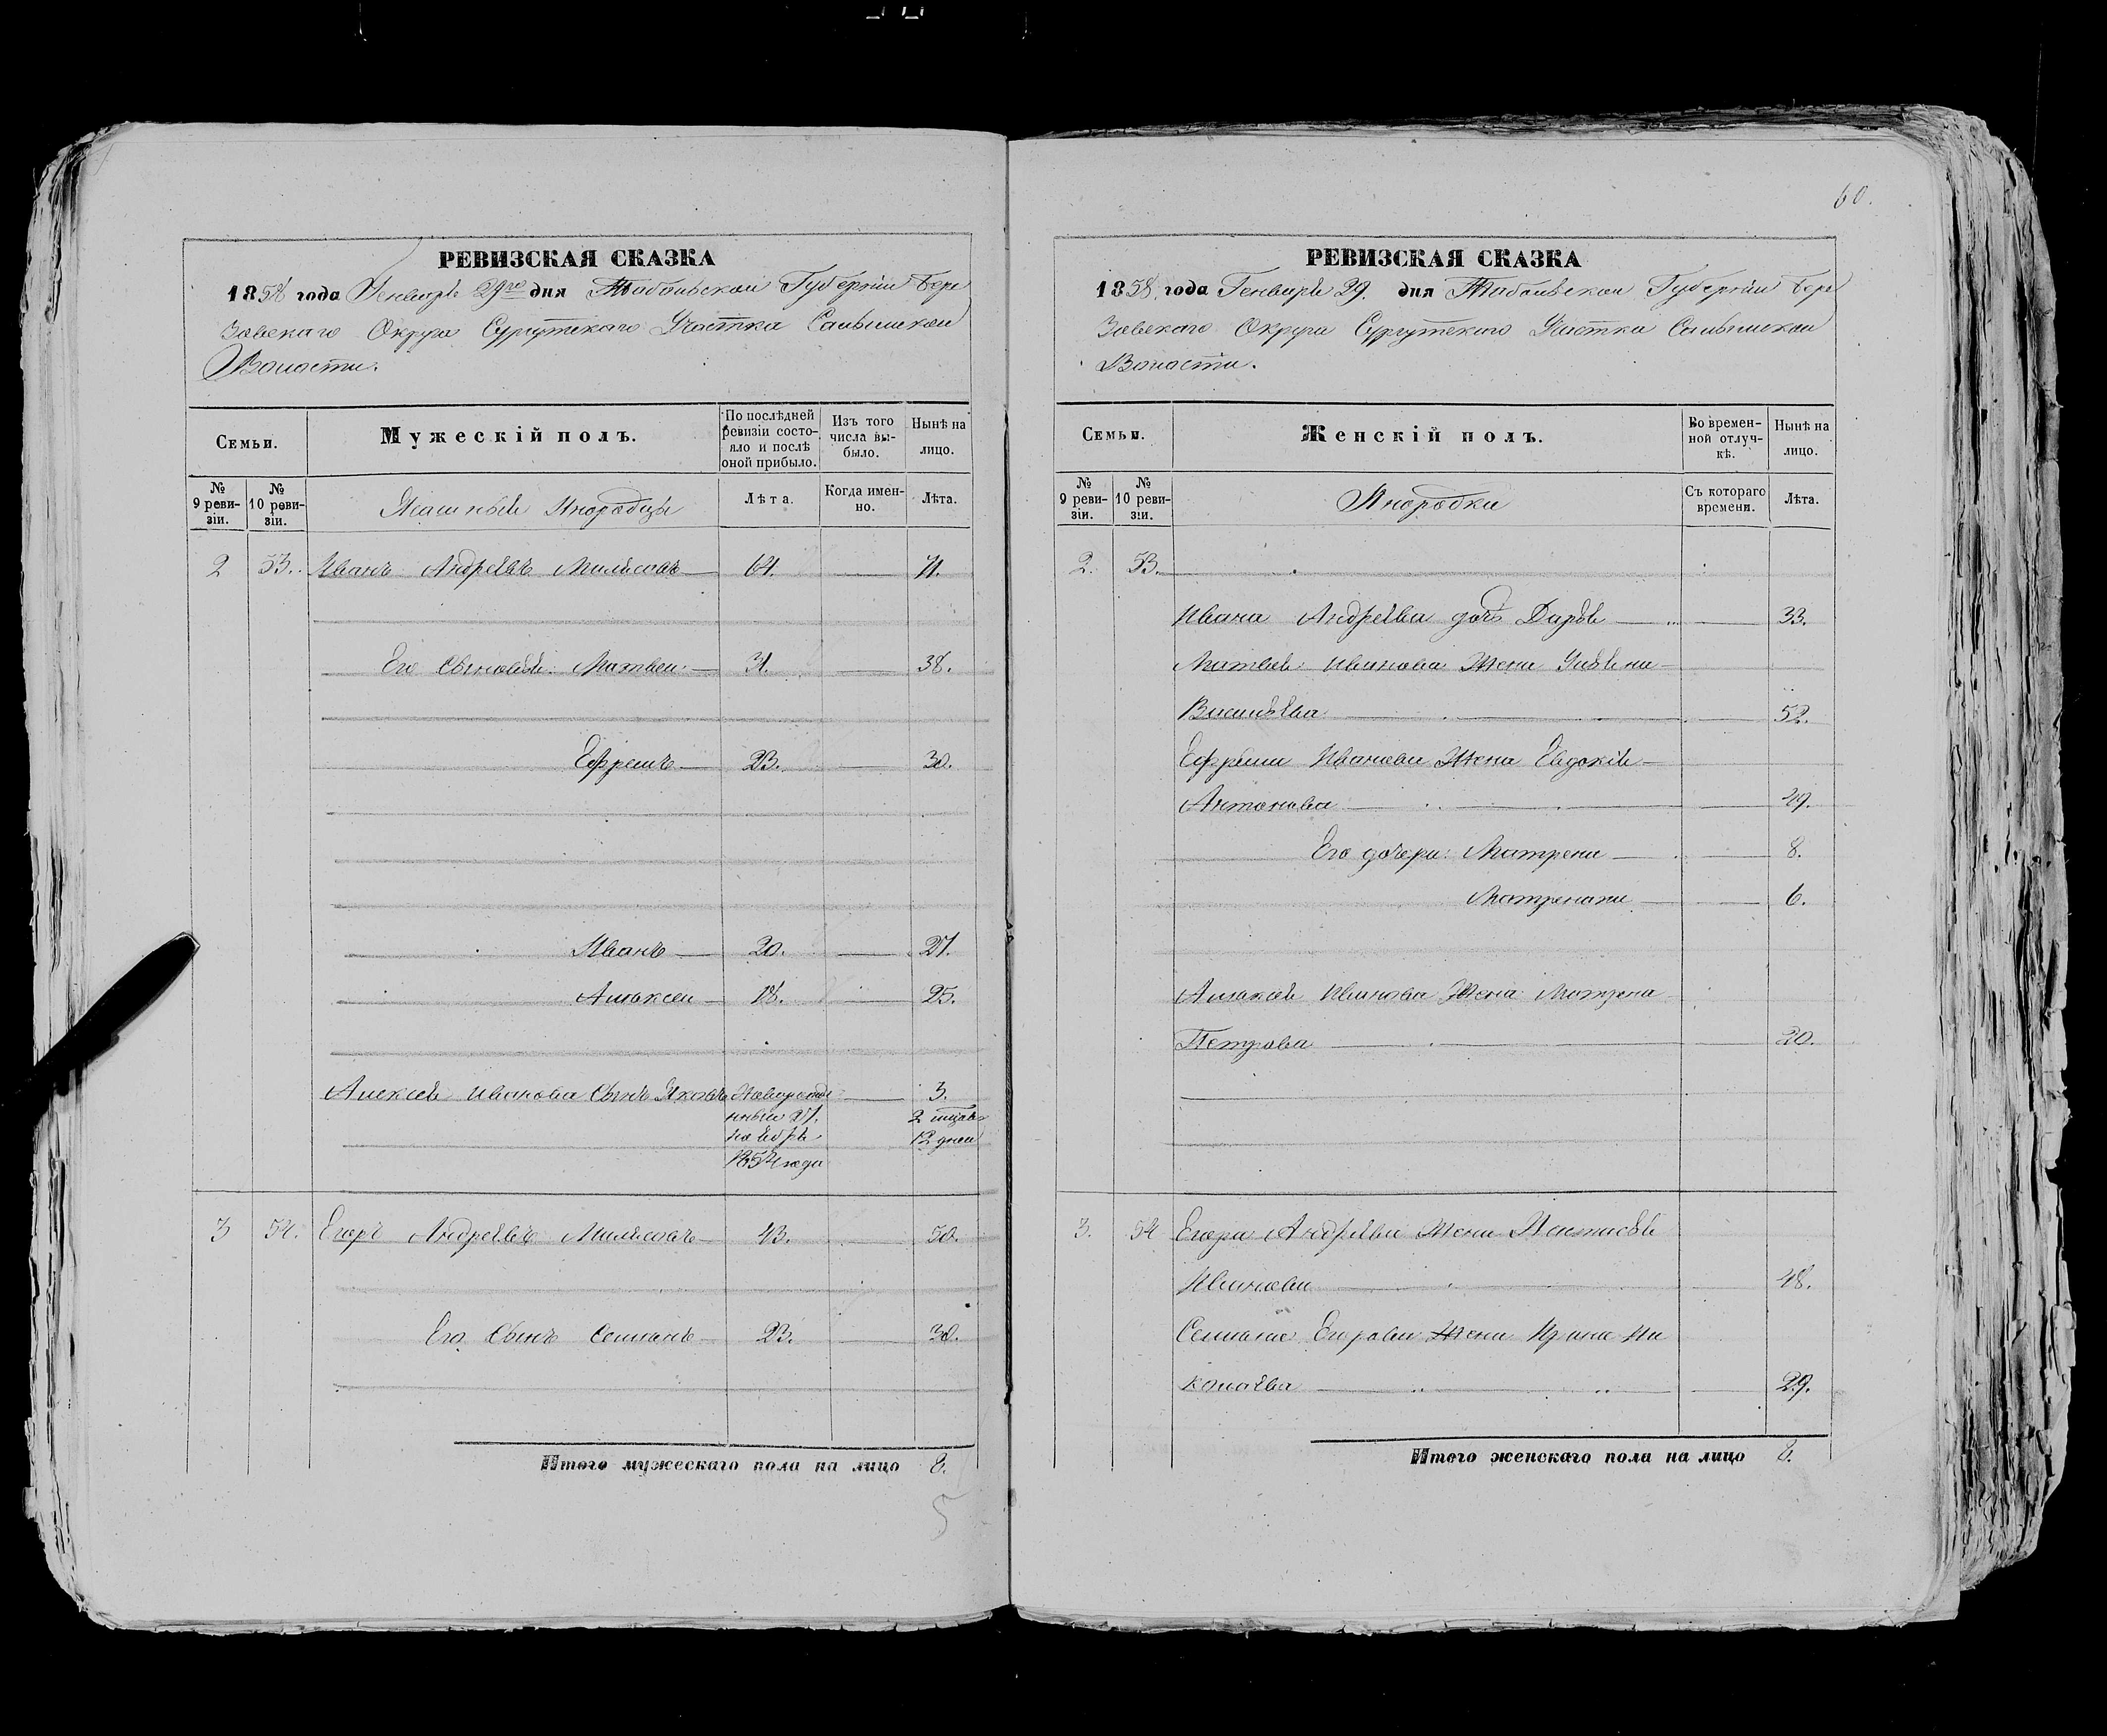 РЕВИЗСКАЯ СКАЗКА
1858 года Генваря 29го дня Тобольской Губерніи Бере
зовскаго Округа Сургутскаго Участка Салымской
Волости.
Семьи.
Мужескій полъ.
По послѣдней ревизіи состо-
яло и послѣ оной прибыло.
Изъ того числа вы-
было.
Нынѣ на лицо.
№ 9 реви-
зіи.
№ 10 реви-
зіи.
Ясашные Инородцы
Лѣта.
Когда имен-
но.
Лѣта.
2 53. Иванъ Андреевъ 64. 71.
Его Сыновья: Матвей 31. 38.
Ефремъ 23. 30.
Иванъ 20. 27.
Алексей 18. 25.
Алексея Иванова Сынъ Яковъ Новорожде 3.
нный 17. 2 мѣсяц
ноября 12 дней
1854 года
3 54. Егоръ Андреевъ 43. 50.
Его Сынъ 23. 30.
Итого мужескаго пола на лицо 8.
5
60.
РЕВИЗСКАЯ СКАЗКА
1858 года Генваря 29. дня Тобольской Губерніи Бере
зовскаго Округа Сургутскаго Участка Салымской
Волости.
Семьи.
Женскій полъ.
Во времен-
ной отлуч-
кѣ.
Нынѣ на лицо.
№ 9 реви-
зіи.
№ 10 реви-
зіи.
Инородки
Съ котораго времени.
Лѣта.
2. 53.
Ивана Андреева дочь Дарья 33.
Матвея Иванова Жена
Васильева 52.
Ефрема Иванова Жена Евдокія
Антонова 49.
Его дочери: Матрена 8.
6.
Алексея Иванова Жена Матрена
Петрова 20.
3. 54 Егора Андреева Жена Настасья
Иванова 48.
Егорова Жена Ирина Ни
колаева 29.
Итого женскаго пола на лицо 8.